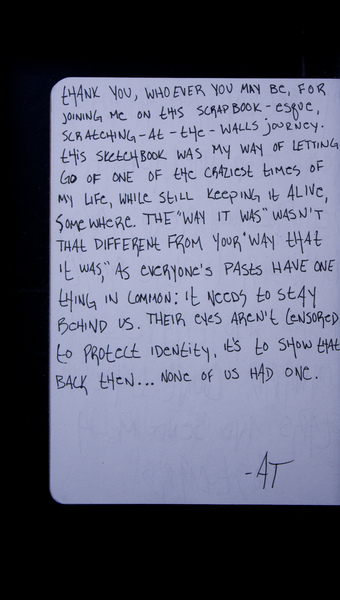 THANK YOU, WHOEVER YOU MAY BE, FOR
JOINING ME ON THIS SCRAPBOOK-ESQUE,
SCRATCHING-AT-THE-WALLS JOURNEY.
THIS SKETCHBOOK WAS MY WAY OF LETTING
GO OF ONE OF THE CRAZIEST TIMES OF
MY LIFE, WHILE STILL KEEPING IT ALIVE,
SOMEWHERE. THE "WAY IT WAS" WASN'T
THAT DIFFERENT FROM YOUR "WAY THAT
IT WAS," AS EVERYONE'S PASTS HAVE ONE
THING IN COMMON: IT NEEDS TO STAY
BEHIND US. THEIR EYES AREN'T CENSORED
TO PROTECT IDENTITY, IT'S TO SHOW THAT
BACK THEN... NONE OF US HAD ONE.
-AT